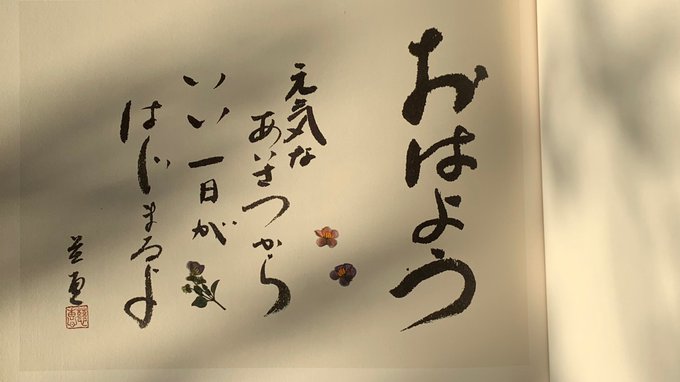 おはよう
元気な
あいさつから
いい一日が
はじまるよ